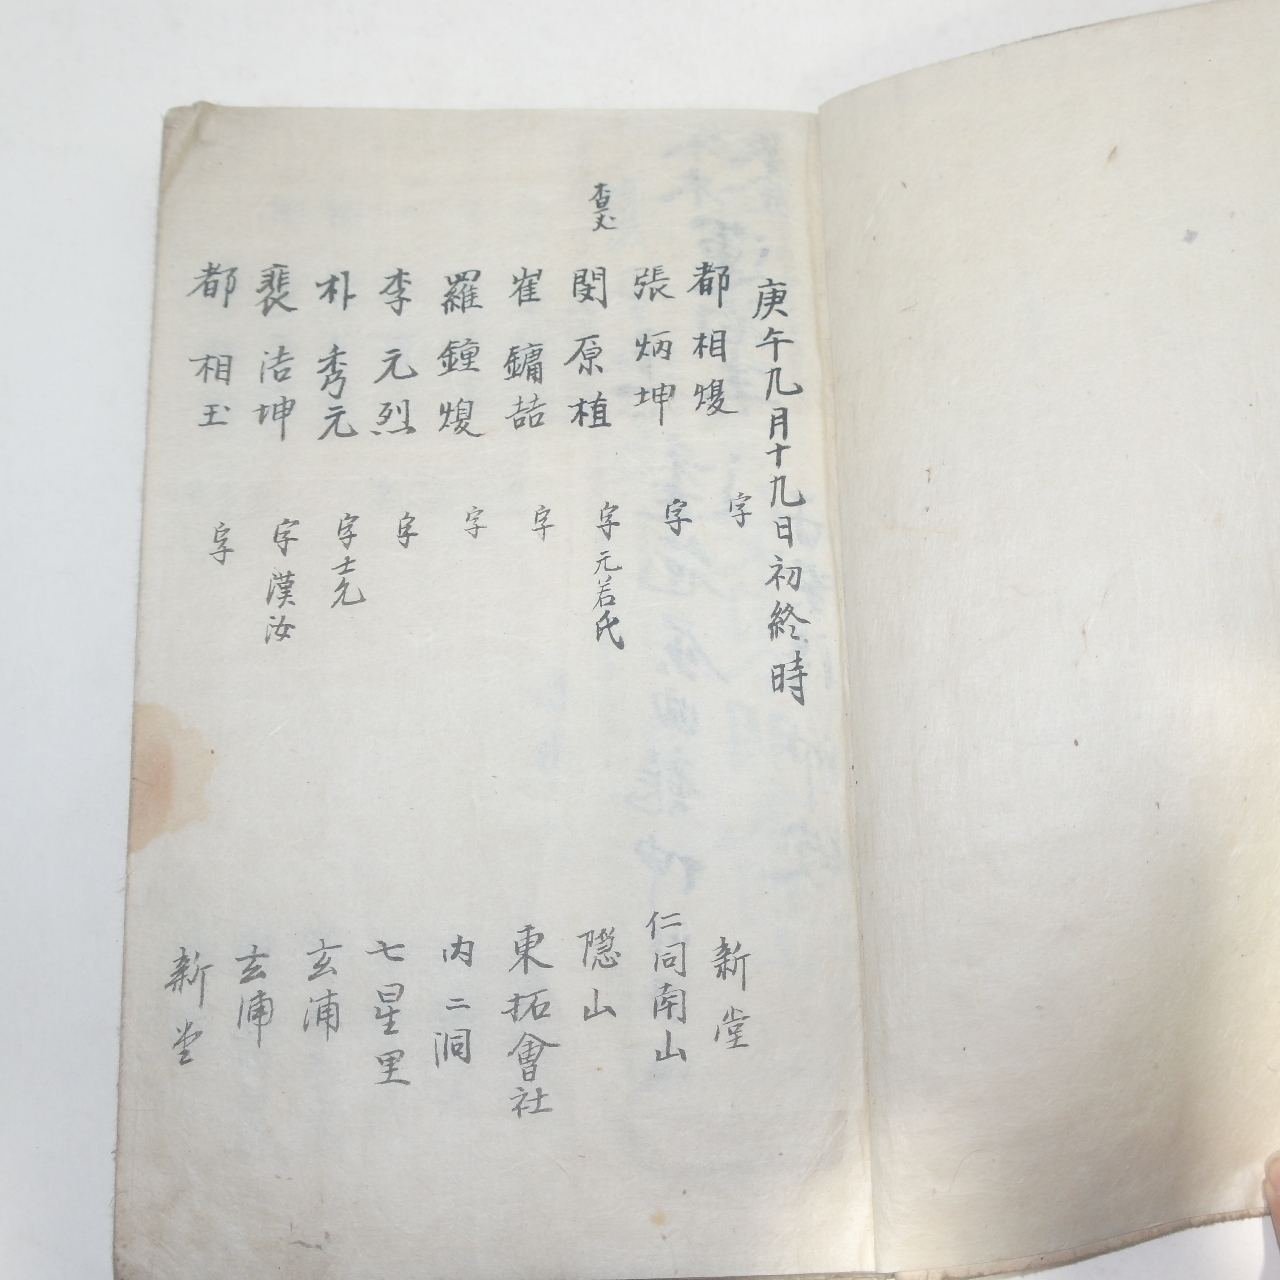 庚午九月十九日初終時
都相熳 字 新堂
張炳坤 字 仁同南山
査丈 閔原植 字元若氏 隱山
崔鏞喆 字 東拓會社
羅鍾煥 字 內二洞
李元烈 字 七星里
朴秀元 字士允 玄浦
裵洁坤 字漢汝 玄浦
都相玉 字 新堂